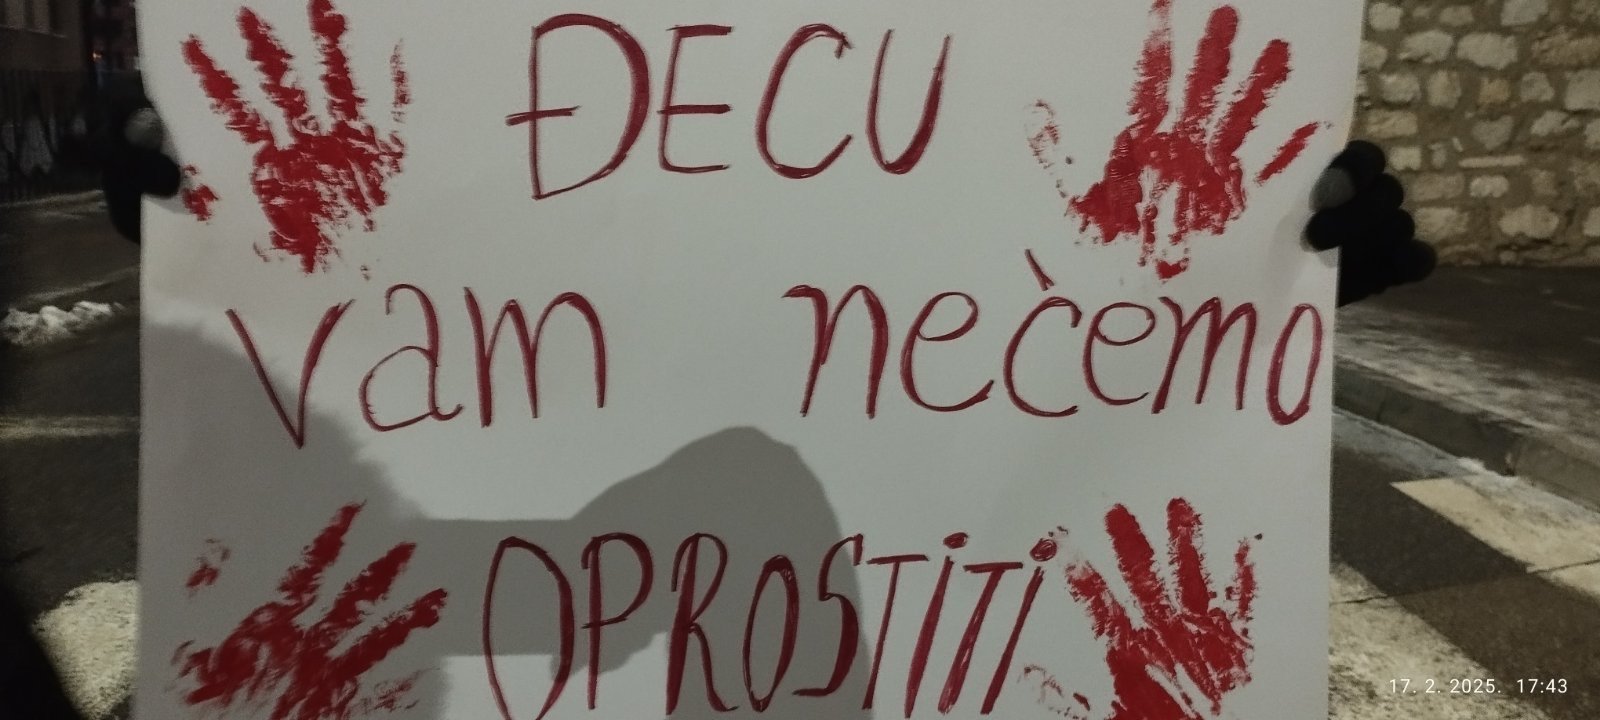 ĐECU
vam nećemo
OPROSTiTi
17. 2. 2025. 17:43